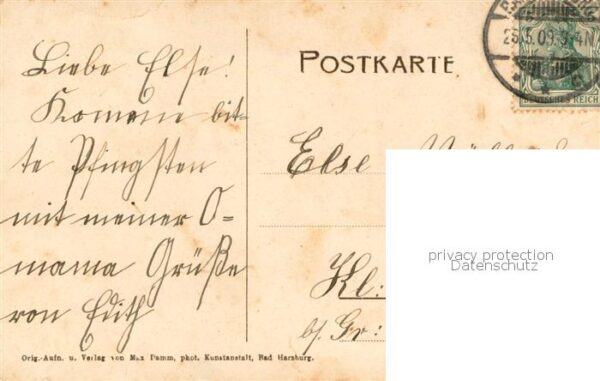 POSTKARTE
25.5.09. 3-4N
DEUTSCHES REICH
Liebe Else!
Komme bit-
te Pfingsten
mit meiner O-
mama Grüße
von Edith
Else
Kl:
b/ Gr:
privacy protection
Datenschutz
Orig.-Aufn. u. Verlag von Max Damm, phot. Kunstanstalt, Bad Harzburg.